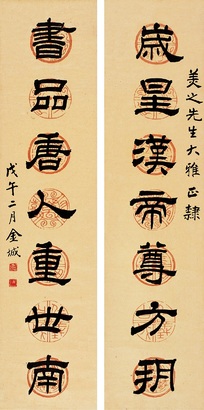 美之先生大雅正隸
歲星漢帝尊方朔
書品唐人重世南
戊午二月金城